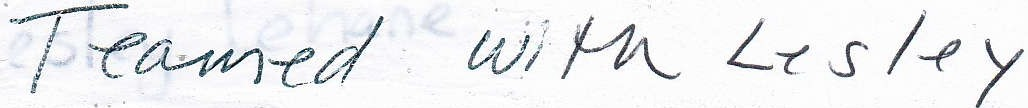 Teamed with Lesley